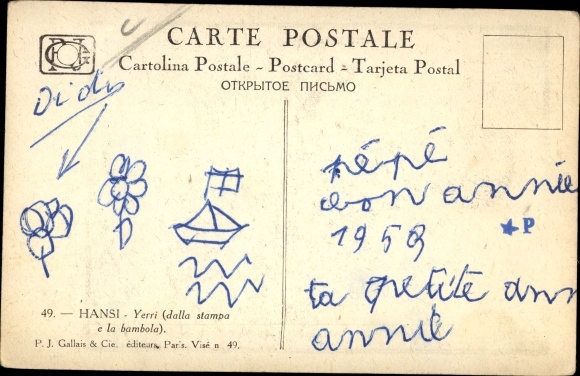 CARTE POSTALE
Cartolina Postale - Postcard - Tarjeta Postal
ОТКРЫТОЕ ПИСЬМО
Didi
pépé
bon année
1958
★P
ta petite ann
annie
49. — HANSI - Yerri (dalla stampa
e la bambola).
P. J. Gallais & Cie. éditeurs, Paris. Visé n 49.